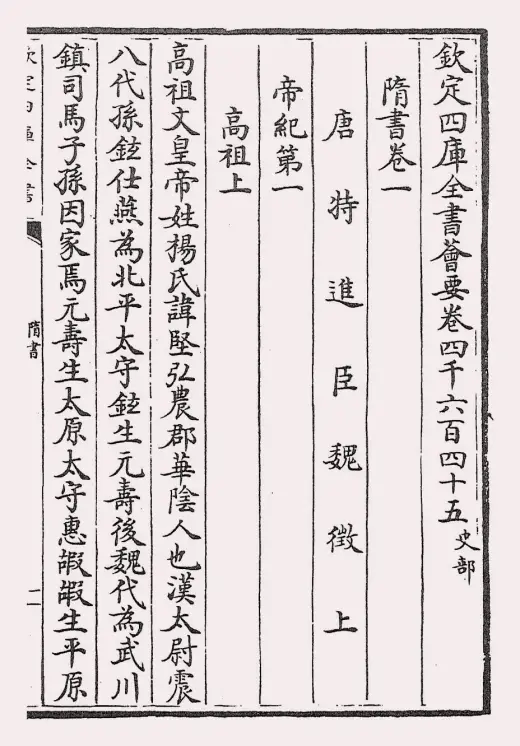 欽定四庫全書薈要卷四千六百四十五史部
隋書卷一
唐特進臣魏徵上
帝紀第一
高祖上
高祖文皇帝姓楊氏諱堅弘農郡華陰人也漢太尉震
八代孫鉉仕燕為北平太守鉉生元壽後魏代為武川
鎮司馬子孫因家焉元壽生太原太守惠嘏嘏生平原
欽定四庫全書
隋書
二